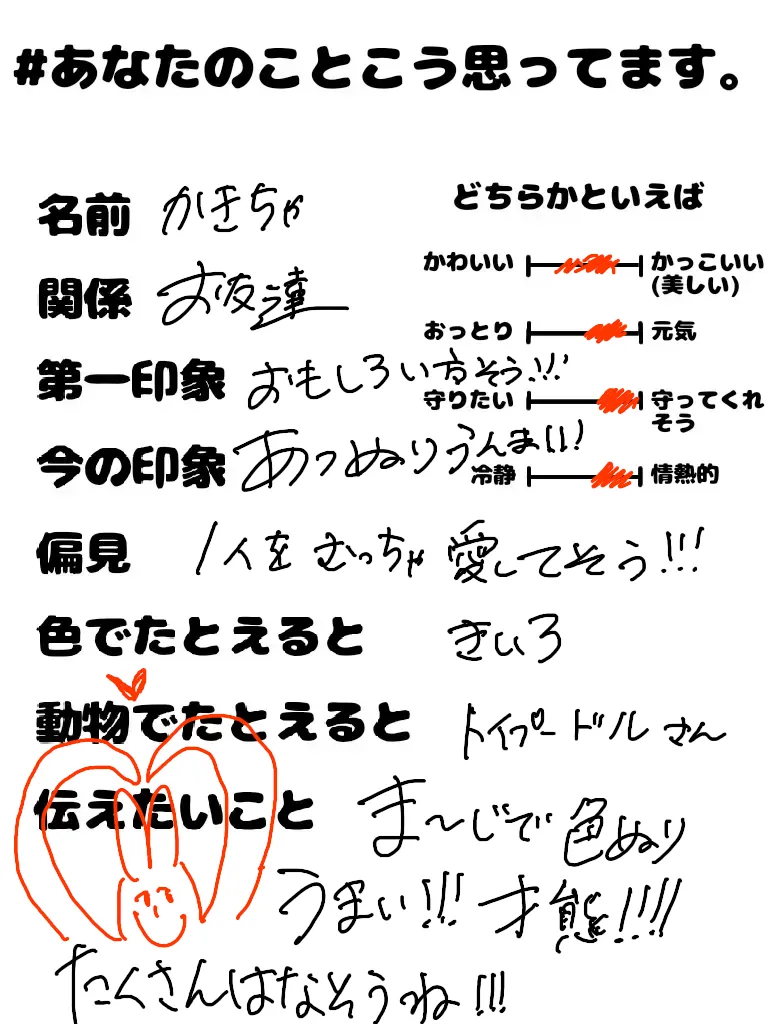 #あなたのことこう思ってます。
名前 かきちゃ
関係 お友達
第一印象 おもしろい方そう!!!
今の印象 あつぬりうんまいい!
偏見 1人をむっちゃ愛してそう!!!
色でたとえると きいろ
動物でたとえると トイプードルさん
伝えたいこと ま〜じで色ぬり
うまい!!! 才態!!!!
たくさんはなそうね!!!
どちらかといえば
かわいい かっこいい
(美しい)
おっとり 元気
守りたい 守ってくれ
そう
冷静 情熱的